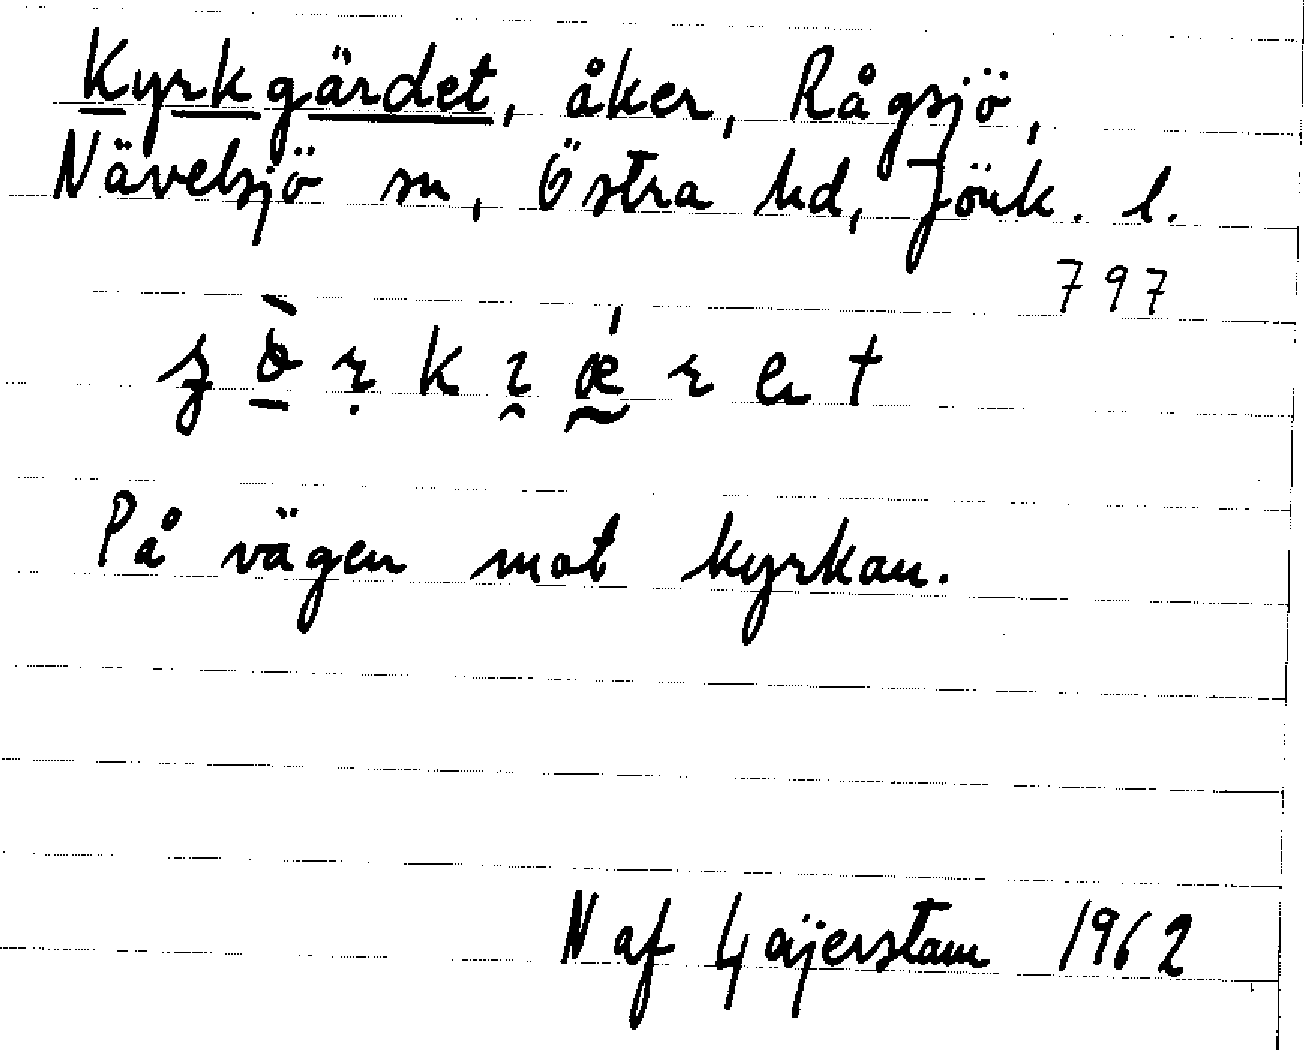 Kyrkgärdet, åker, Rågsjö,
Nävelsjö sn, Östra hd, Jönk. l.
797
På vägen mot kyrkan.
N af Geijerstam 1962